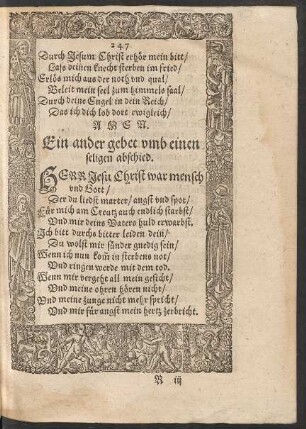 247
Durch Jesum Christ erhör mein bitt/
Laß deinen knecht sterben im fried/
Erlös mich aus der noth vnd qual/
Beleit mein seel zum himmels saal/
Durch deine Engel in dein Reich/
Das ich dich lob dort ewiglich/
AMEN.
Ein ander gebet vmb einen
seligen abschied.
HERR Jesu Christ war mensch
vnd Gott/
Der du liedst marter/ angst vnd spot/
Für mich am Creutz auch endlich starbst/
Vnd mir deins Vaters huld erwarbst.
Ich bitt durchs bitter leiden dein/
Du wolst mir sünder gnedig sein/
Wenn ich nun kom̃ in sterbens not/
Vnd ringen werde mit dem tod.
Wenn mir vergeht all mein gesicht/
Vnd meine ohren hören nicht/
Vnd meine zunge nicht mehr spricht/
Vnd mir für angst mein hertz zerbricht.
R iij